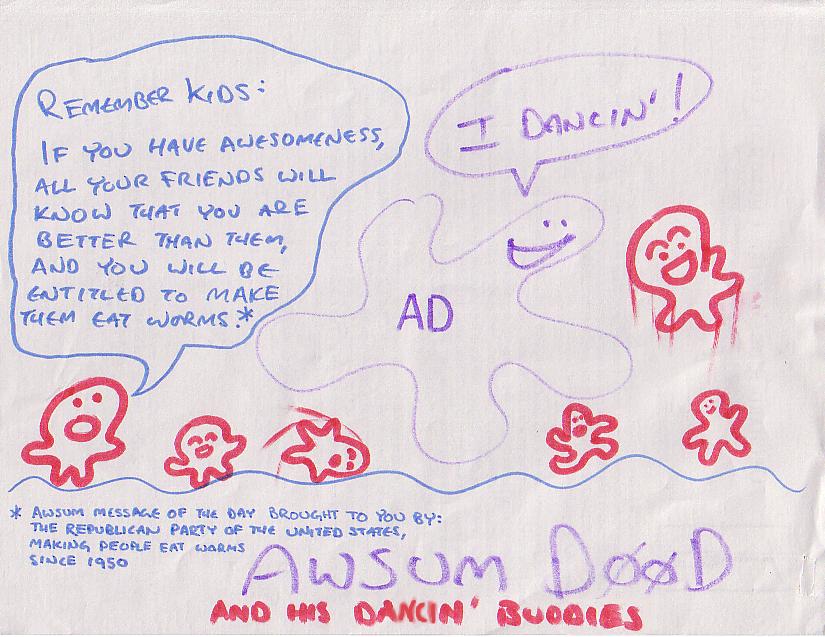 REMEMBER KIDS:
IF YOU HAVE AWESOMENESS,
ALL YOUR FRIENDS WILL
KNOW THAT YOU ARE
BETTER THAN THEM,
AND YOU WILL BE
ENTITLED TO MAKE
THEM EAT WORMS.*
I DANCIN'!
AD
* AWSUM MESSAGE OF THE DAY BROUGHT TO YOU BY:
THE REPUBLICAN PARTY OF THE UNITED STATES,
MAKING PEOPLE EAT WORMS
SINCE 1950
AWSUM DØØD
AND HIS DANCIN' BUDDIES